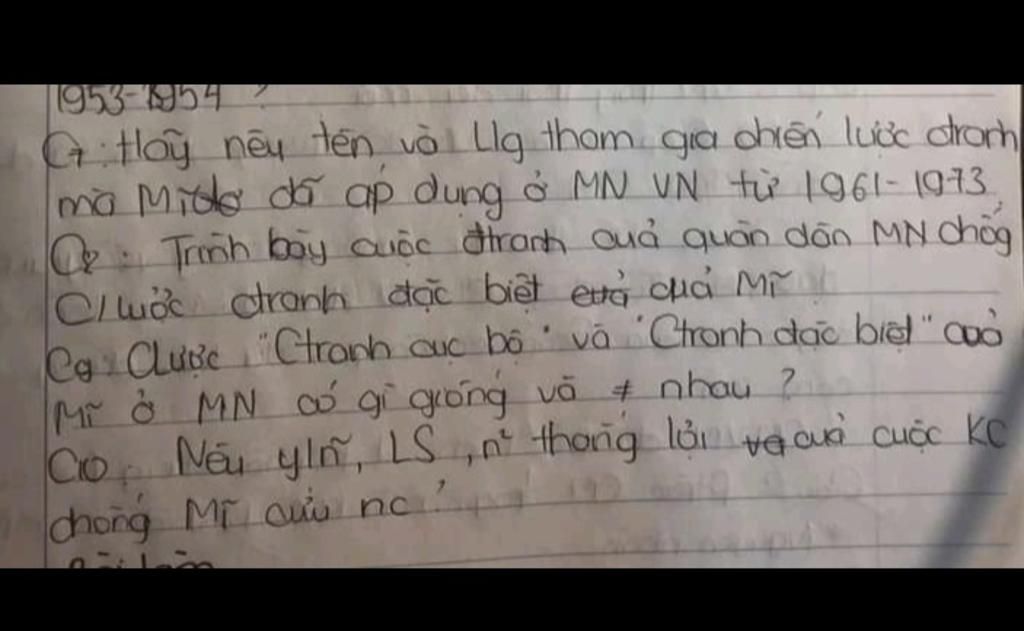 1953-1954 ?
C7: Hãy nêu tên và llg tham gia chiến lược ctranh
mà Mĩ đã áp dụng ở MN VN từ 1961-1973
C8: Trình bày cuộc đtranh quả quân dân MN chống
C/lược ctranh đặc biệt của Mĩ
C9: Clược "Ctranh cục bộ" và "Ctranh đặc biệt" của
Mĩ ở MN có gì giống và ≠ nhau ?
C10: Nêu ý/n, LS, n² thắng lợi của cuộc KC
chống Mĩ cứu nc?